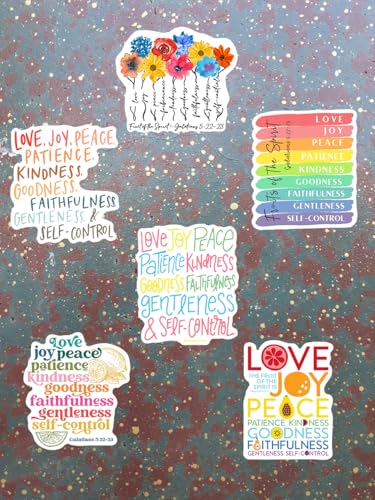 Love
joy
peace
patience
kindness
goodness
faithfulness
gentleness
self-control
Fruit of the Spirit - Galatians 5:22-23
LOVE, JOY, PEACE,
PATIENCE,
KINDNESS,
GOODNESS,
FAITHFULNESS
GENTLENESS, &
SELF-CONTROL
Fruits of the Spirit
Galatians 5:22-23
LOVE
JOY
PEACE
PATIENCE
KINDNESS
GOODNESS
FAITHFULNESS
GENTLENESS
SELF-CONTROL
LOVE JOY PEACE
PATIENCE KINDNESS
GOODNESS FAITHFULNESS
gentleness
& SELF-CONTROL
Love
joy peace
patience
kindness
goodness
faithfulness
gentleness
self-control
Galatians 5:22-23
LOVE
THE FRUIT
OF THE
SPIRIT IS
JOY
PEACE
PATIENCE KINDNESS
GOODNESS
FAITHFULNESS
GENTLENESS SELF CONTROL